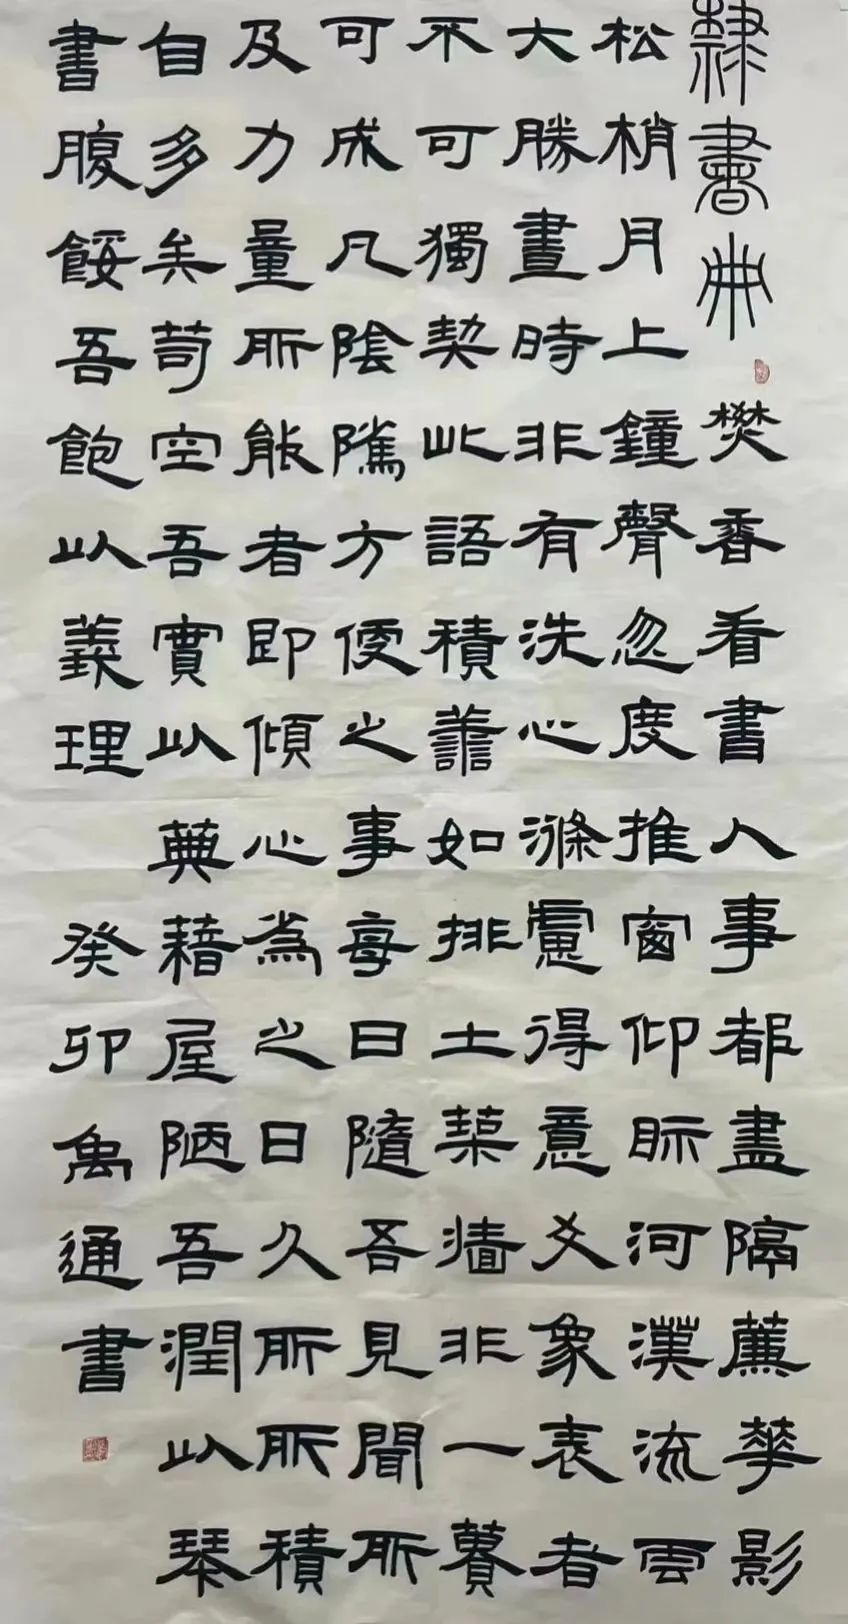 隸書冊
焚香看書人事都盡隔簾華影
松梢月上鐘聲忽度推窗仰眎河漢流雲
大勝晝時非有洗心滌慮得意爻象表者
不可獨契此語積善如排土築墻非一蕢
可成凡陰隲方便之事每日隨吾見聞所
及力量所能者即傾心為之日久所所積
自多矣苛空吾實以蕪藉屋陋吾潤以琴
書腹餒吾飽以義理
癸卯禹通書